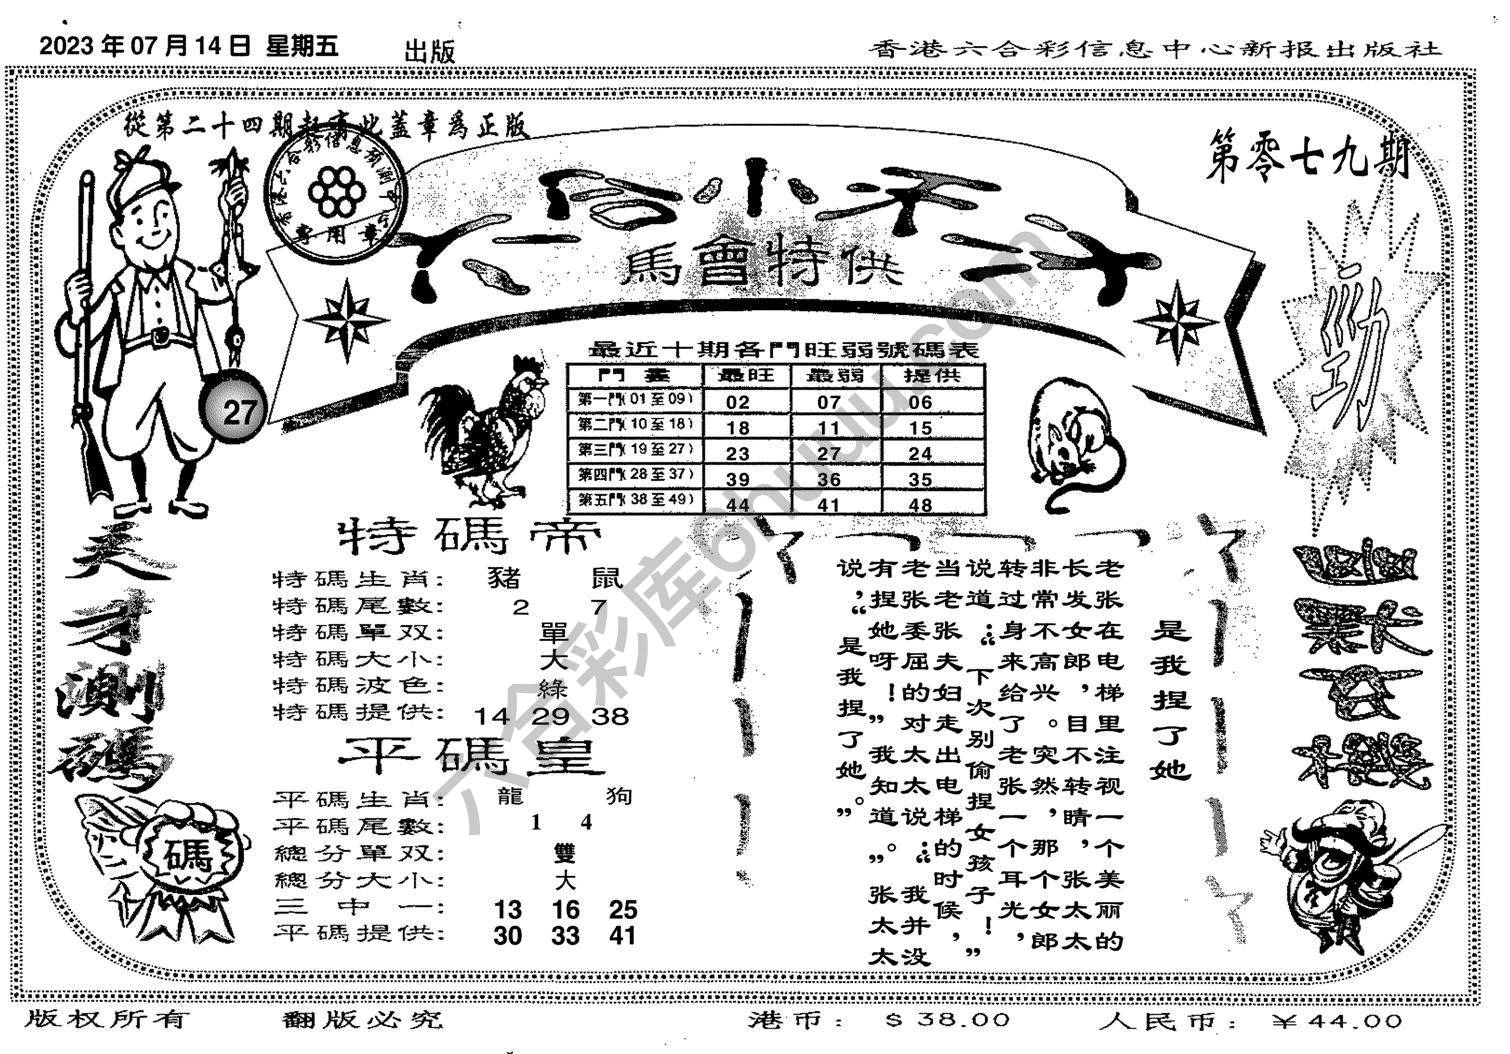 2023 年 07 月 14 日 星期五
出版
香港六合彩信息中心新报出版社
從第二十四期起有此蓋章爲正版
第零七九期
六合小天才
馬會特供
專用章
勁
27
最近十期各門旺弱號碼表
門 最旺 最弱 提供
第一門(01至09) 02 07 06
第二門(10至18) 18 11 15
第三門(19至27) 23 27 24
第四門(28至37) 39 36 35
第五門(38至49) 44 41 48
天才測碼
碼
特碼帝
特碼生肖: 豬 鼠
特碼尾數: 2 7
特碼單双: 單
特碼大小: 大
特碼波色: 綠
特碼提供: 14 29 38
平碼皇
平碼生肖: 龍 狗
平碼尾數: 1 4
總分單双: 雙
總分大小: 大
三中一: 13 16 25
平碼提供: 30 33 41
是我捏了她
老张在电梯里注视一个美丽的
长发女郎，目不转睛，张太太
非常不高兴。突然，那个女郎
转过身来给了老张一个耳光，
说道：“下次别偷捏女孩子！”
当老张夫妇走出电梯的时候，
老张委屈的对太太说：“我并没
有捏她呀！”“我知道”。张太太
说，“是我捏了她。”
幽默玄機
六合彩库6huuu.com
版权所有
翻版必究
港币： $ 38.00
人民币： ¥ 44.00